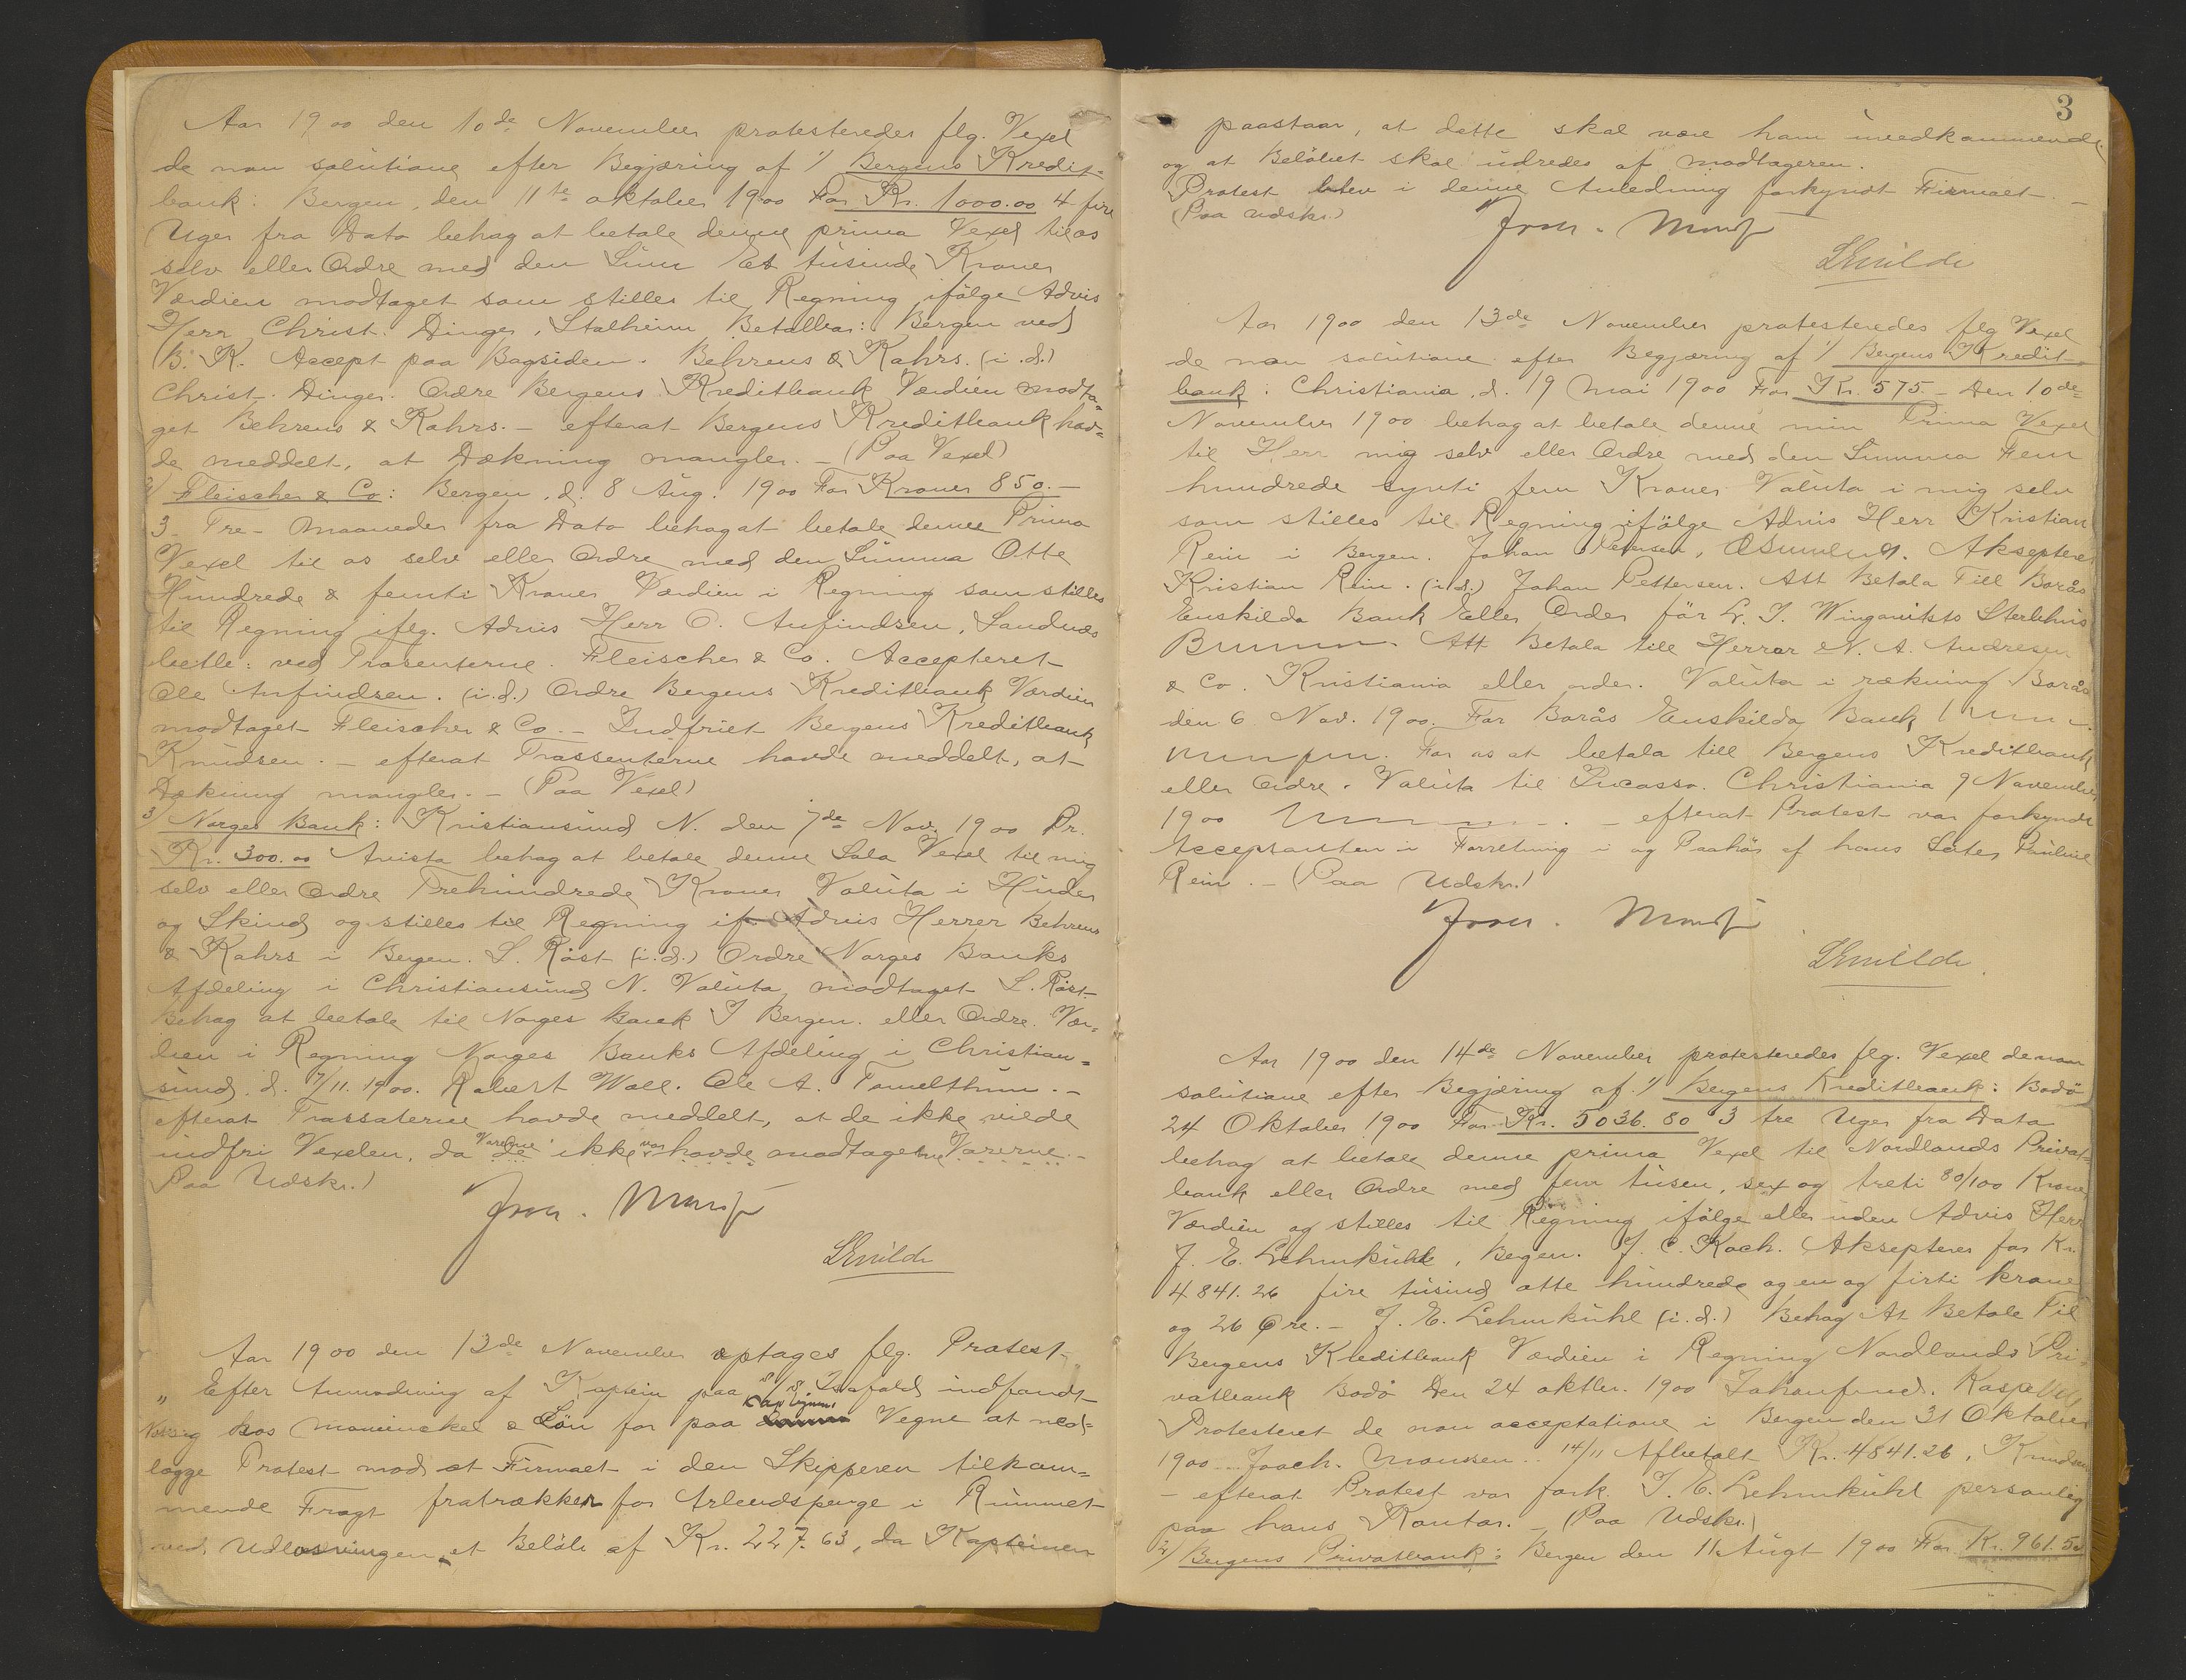 Aar 1900 den 10de November protesteredes flg. Vexel
de non solutione efter Begjæring af 1/ Bergens Kredit-
bank: Bergen, den 11te oktober 1900 For Kr. 1000.00 4 fire
Uger fra Dato behag at betale denne prima Vexel til os
selv eller Ordre med den Sum Et tusinde Kroner
Værdien modtaget som stilles til Regning ifølge Advis
Herr Christ. Dinger, Stalheim Betalbar: Bergen ved
B. K. Accept paa Bagsiden. Behrens & Kahrs. (i.d.)
Christ. Dinger. Ordre Bergens Kreditbank Værdien modta=
get Behrens & Kahrs. – efterat Bergens Kreditbank hav=
de meddelt, at Dækning mangler. – (Paa Vexel)
2/ Fleischer & Co: Bergen, d. 8 Aug. 1900 For Kroner 850. –
3 – Tre – Maaneder fra Dato behag at betale denne Prima
Vexel til os selv eller Ordre med den Summa Otte
Hundrede & femti Kroner Værdien i Regning som stilles
til Regning iflg. Advis Herr O. Anfindsen, Sandnæs
betlb: ved Trasenterne. Fleischer & Co. Accepteret
Ole Anfindsen. (i.d.) Ordre Bergens Kreditbank Værdien
modtaget Fleischer & Co. – Indfriet Bergens Kreditbank
Knudsen. – efterat Trassenterne havde meddelt, at
Dækning mangler. – (Paa Vexel)
3/ Norges Bank: Kristiansund N. den 7de Nov. 1900 Pr.
Kr. 300.00 Avista behag at betale denne Sola Vexel til mig
selv eller Ordre Trehundrede Kroner Valuta i Huder
og Skind og stilles til Regning if Advis Herrer Behrens
& Kahrs i Bergen. L. Røst (i.d.) Ordre Norges Banks
Afdeling i Christiansund N. Valuta modtaget L. Røst
Behag at betale til Norges Bank I Bergen. eller Ordre. Vær=
dien i Regning Norges Banks Afdeling i Christian=
sund. d. 7/11. 1900. Robert Wall. Ole A. Tomelthun. –
efterat Trassaterne havde meddelt, at de ikke vilde
indfri Vexelen, da Varerne de ikke var havde modtagetne Varerne. –
Paa Udskr.)
Joach. Mons
LSmilde
Aar 1900 den 13de November optages flg. Protest
" Efter Anmodning af Kaptein paa s/s. indfandt
jeg hos Mowinckel & Søn for paa Kapteinens Vegne at ned=
lægge Protest mod at Firmaet i den Skipperen tilkom=
mende Fragt fratrækker for Arbeidspenge i Rummet
ved Udlosningen et Beløb af Kr. 227.63, da Kapteinen
3
paastaar, at dette skal være ham uvedkommende
og at Beløbet skal udredes af modtageren.
Protest blev i denne Anledning forkyndt Firmaet. –
(Paa Udskr.)
Joach. Mons
LSmilde
Aar 1900 den 13de November protesteredes flg Vexel
de non solutione efter Begjæring af 1/ Bergens Kredit-
bank: Christiania, d. 19 Mai 1900 For Kr. 575 – Den 10de
November 1900 behag at betale denne min Prima Vexel
til Herr mig selv eller Ordre med den Summa Fem
hundrede sytti fem Kroner Valuta i mig selv
som stilles til Regning ifølge Advis Herr Kristian
Rein i Bergen. Johan Petersen, Aksepteres
Kristian Rein. (i.d.) Johan Pettersen. Att Betala Till Borås
Enskilda Bank Eller Order før L. J. Wingqvists Sterbhus
Att Betala till Herrar N. A. Andresen
& Co. Kristiania eller order. Valuta i rækning Borås
den 6 Nov. 1900. For Borås Enskilda Bank
For os at betala till Bergens Kreditbank
eller Ordre. Valuta til Incasso. Christiania 9 November
1900 – efterat Protest var forkyndt
Acceptanten i Forretning i og Paahør af hans Søster Pauline
Rein. – (Paa Udskr.)
Joach. Mons
LSmilde
Aar 1900 den 14de November protesteredes flg. Vexel de non
solutione efter Begjæring af 1/ Bergens Kreditbank: Bodø
24 Oktober 1900 For Kr. 5036.80 3 tre Uger fra Dato
behag at betale denne prima Vexel til Nordlands Privat=
bank eller Ordre med fem tusen, sex og treti 80/100 Kroner
Værdien og stilles til Regning ifølge eller uden Advis Herr
J. E. Lehmkuhl, Bergen. J. C. Koch. Aksepteres for Kr.
4841.26 fire tusind otte hundrede og en og firti kroner
og 26 Øre. – J. E. Lehmkuhl (i.d.) Behag At Betale Til
Bergens Kreditbank Værdien i Regning Nordlands Pri=
vatbank Bodø Den 24 oktbr. 1900
Protesteret de non acceptatione i Bergen den 31 Oktober
1900 Joach. Monssen. 14/11 Afbetalt Kr. 4841.26. Knudsen
– efterat Protest var fork. J. E. Lehmkuhl personlig
paa hans Kontor. – (Paa Udskr.)
2/ Bergens Privatbank: Bergen den 11 Augt 1900 For Kr. 961.50